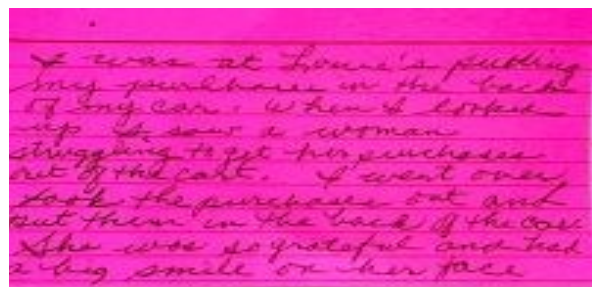 I was at Lowe's putting
my purchases in the back
of my car. When I looked
up I saw a woman
struggling to get her purchases
out of the cart. I went over,
took the purchases out and
put them in the back of the car.
She was so grateful and had
a big smile on her face